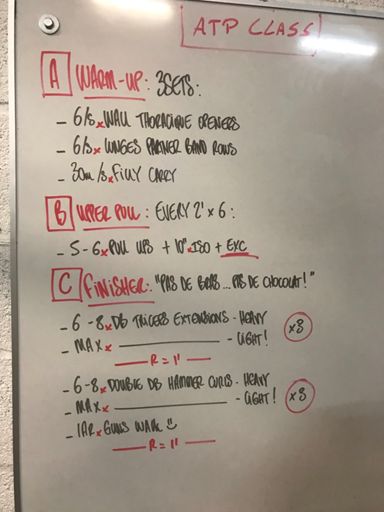 ATP CLASS
A WARM-UP: 3SETS:
- 6/s x WALL THORACIQUE OPENERS
- 6/s x LUNGES PARTNER BAND ROWS
- 30m/s x FILLY CARRY
B UPPER PULL: EVERY 2' x 6:
- 5-6 x PULL UPS + 10" ISO + EXC
C FINISHER: "PAS DE BRAS... PAS DE CHOCOLAT!"
- 6-8 x DB TRICEPS EXTENSIONS - HEAVY
- MAX x ——— - LIGHT! x3
R = 1'
- 6-8 x DOUBLE DB HAMMER CURLS - HEAVY
- MAX x ——— - LIGHT! x3
- 1AR x GUNS WALK
R = 1'